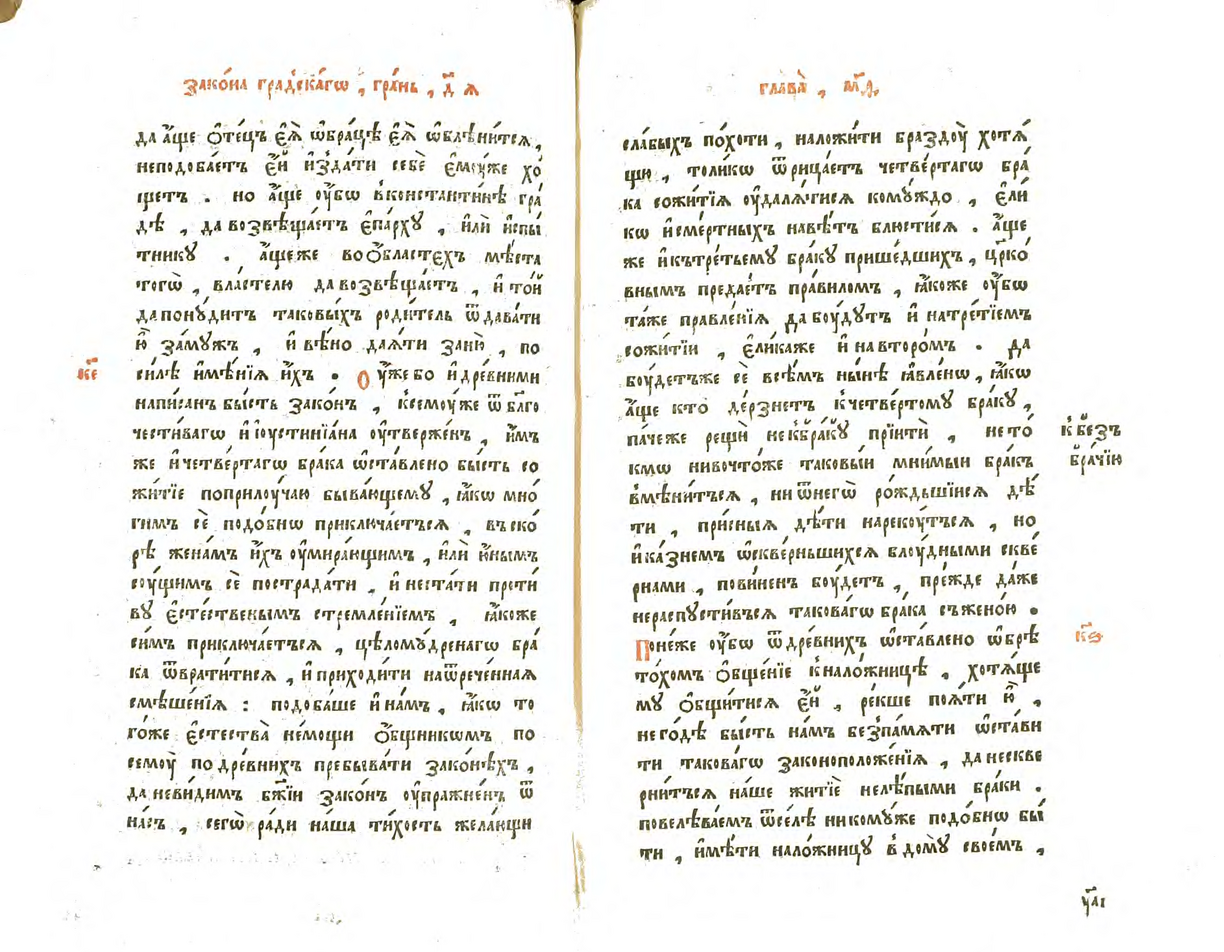 Зако́на градска́гѡ , гра́нь , д҃ ꙗ
да а҆́ще ѻ҆те́цъ є҆ѧ̀ ѡ҆браще́ є҆ѧ̀ ѡ҆блѣни́тсѧ ,
неподоба́етъ є҆́й и҆зда́ти себѐ є҆мꙋ́же хо́
щетъ . но а҆́ще ᲂу҆́бѡ вконстанти́нѣ гра́
дѣ , да возвѣща́етъ є҆па́рхꙋ , и҆лѝ и҆спы́
тникꙋ . а҆́щеже воѻ҆́бластехъ мѣ́ста
тогѡ̀ , вла́стелю да возвѣща́етъ , и҆ то́й
да понꙋ́дитъ таковы́хъ роди́тель ѿдава́ти
ю҆̀ за́мꙋжъ , и҆ вѣ́но даѧ́ти за ню̀ , по
си́лѣ и҆мѣ́нїѧ и҆́хъ .
к҃е
Оу҆́же бо и҆ дре́вними
напи́санъ бы́сть зако́нъ , ксемꙋ́же ѿ бл҃го
чести́вагѡ и҆ і҆ꙋстинїа́на ᲂу҆твержéнъ , и҆́мъ
же и҆ четве́ртагѡ бра́ка ѡ҆ста́влено бы́сть со
жи́тїе поприлꙋча́ю быва́ющемꙋ , ꙗ҆́кѡ мно́
гимъ сѐ подо́бнѡ приключа́етъсѧ , въ ско́
рѣ жена́мъ и҆́хъ ᲂу҆мира́ющимъ , и҆лѝ ю҆́нымъ
сꙋ́щимъ сѐ пострада́ти , и҆ нестати проти́
вꙋ є҆сте́ственымъ стремле́нїемъ , ꙗ҆́коже
си́мъ приключа́етъсѧ , цѣломꙋ́дренагѡ бра́
ка ѿврати́тисѧ , и҆ приходи́ти на ѿрече́ннаѧ
смѣше́нїѧ : подоба́ше и҆ на́мъ , ꙗ҆́кѡ то
го́же є҆стества̀ не́мощи ѻ҆́бщникѡмъ по
семꙋ̀ по дре́внихъ пребыва́ти зако́нѣхъ ,
да неви́димъ бж҃їи зако́нъ ᲂу҆праждне́нъ ѿ
на́съ , сегѡ̀ ра́ди на́ша ти́хость жела́ющи
глава̀ , м҃ѳ.
сла́быхъ по́хоти , наложи́ти бразды̀ хотѧ́
щи , толи́кѡ ѿрица́етъ четве́ртагѡ бра́
ка сожи́тїѧ ᲂу҆далѧ́тисѧ комꙋ́ждо , є҆ли́
кѡ и҆ сме́ртныхъ навѣ́тъ блюсти́сѧ . а҆́ще
же и҆ ктре́тьемꙋ бра́кꙋ прише́дшихъ , цр҃ко́
внымъ предае́тъ пра́вилѡмъ , ꙗ҆́коже ᲂу҆́бѡ
та́же правле́нїѧ да бꙋ́дꙋтъ и҆ на тре́тїемъ
сожи́тїи , є҆ли́каже и҆ на второ́мъ . да
бꙋ́детъже сѐ всѣ́мъ ны́нѣ ꙗ҆вле́нѡ , ꙗ҆́кѡ
а҆́ще кто̀ де́рзнетъ к четве́ртомꙋ бра́кꙋ ,
па́чеже рещѝ не кбра́кꙋ прїитѝ , не то́
к безъ
бра́чїю
кмѡ нивочто́же таковы́и мни́мыи бра́къ
вмѣни́тъсѧ , ни ѿ негѡ̀ ро́ждьшїисѧ дѣ́
ти , при́сныѧ дѣ́ти нарекꙋ́тъсѧ , но
и҆ ка́знемъ ѡ҆скве́рньшихсѧ блꙋ́дными скве́
рнами , пови́ненъ бꙋ́детъ , пре́жде да́же
нераспꙋсти́въсѧ такова́гѡ бра́ка съ жено́ю .
к҃ѕ
Поне́же ᲂу҆́бѡ ѿ дре́внихъ ѡ҆ста́влено ѡ҆брѣ
то́хомъ ѻ҆бще́нїе к нало́жницѣ , хотѧ́ще
мꙋ ѻ҆бщи́тисѧ є҆́й , ре́кше поѧ́ти ю҆̀ ,
не го́дѣ бы́сть на́мъ без̾ па́мѧти ѡ҆ста́ви
ти такова́гѡ законоположе́нїѧ , да не скве
рни́тъсѧ на́ше житїѐ нелѣ́пыми бра́ки .
повелѣва́емъ ѿсе́лѣ никомꙋ́же подо́бнѡ бы́
ти , и҆мѣ́ти нало́жницꙋ в домꙋ̀ свое́мъ ,
ꙋ҃аі